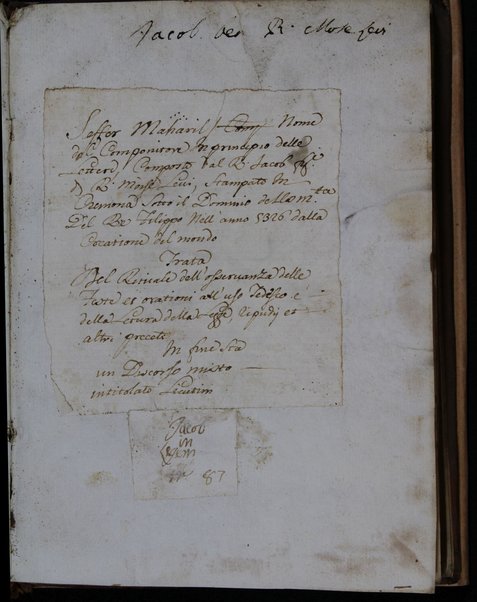 Jacob. ben R. Mose Levi
Seffer Maharil Nome
del Compositore In principio delle
Lettere, Composto dal R. Jacob
R. Moise Levi, Stampato In
Cremona Sotto il Dominio della M.ta
Del Re Filippo Nell'anno 5326 dalla
Creatione del mondo
Trata
Del Rituale dell'osservanza delle
Feste et orationi all'uso Tedesco e
della Letura della Legge, Repudij et
altri precetti
In fine sta
un Discorso misto
intitolato Licutim
Jacob
in
87